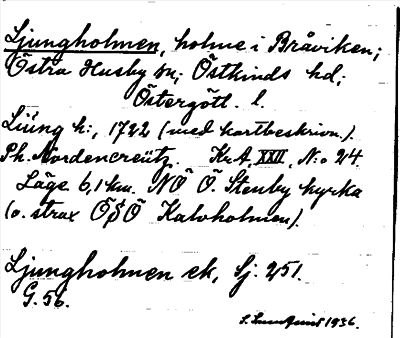 Ljungholmen, holme i Bråviken;
Östra Husby sn; Östkinds hd;
Östergötl. l.
Liüng h:, 1722 (med kartbeskrivn.).
Ph. Nordencreütz. Kr.A. XXII, N:o 24.
Läge 6,1 km. NÖ Ö. Stenby kyrka
(o. strax ÖSÖ Kalvholmen).
Ljungholmen ek, Sj. 251.
G. 56.
1936.